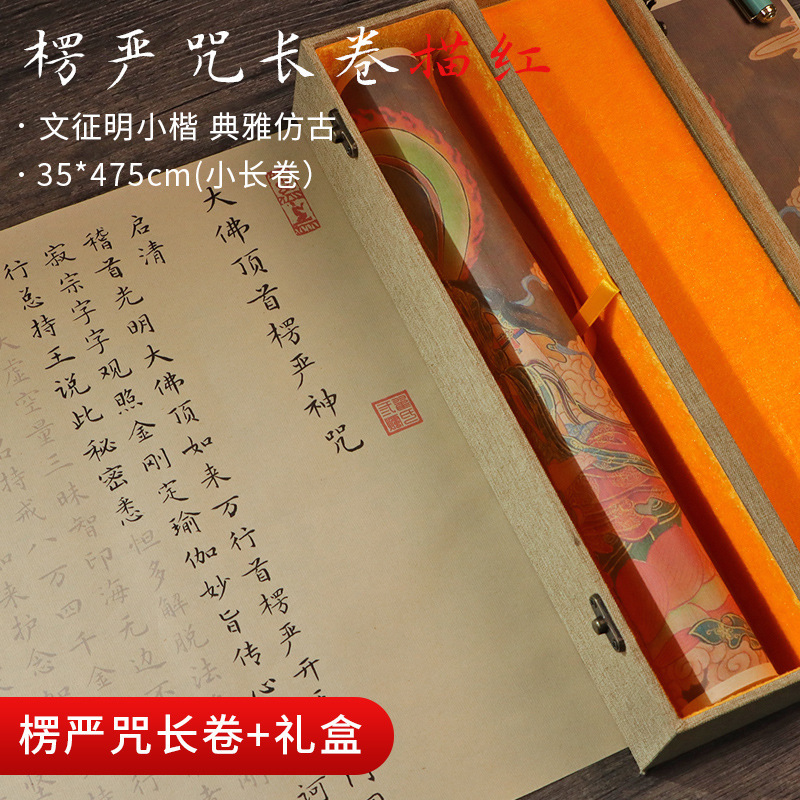 楞严咒长卷描红
· 文征明小楷 典雅仿古
· 35*475cm(小长卷)
大佛顶首楞严神咒
启清
稽首光明大佛顶如来万行首楞严开
寂宗字字观照金刚定瑜伽妙旨传心
行总持王说此秘密悉怛多解脱法
大虚空量三昧智印海无边不
持戒八万四千金
来护念
坚
诃
楞严咒长卷+礼盒